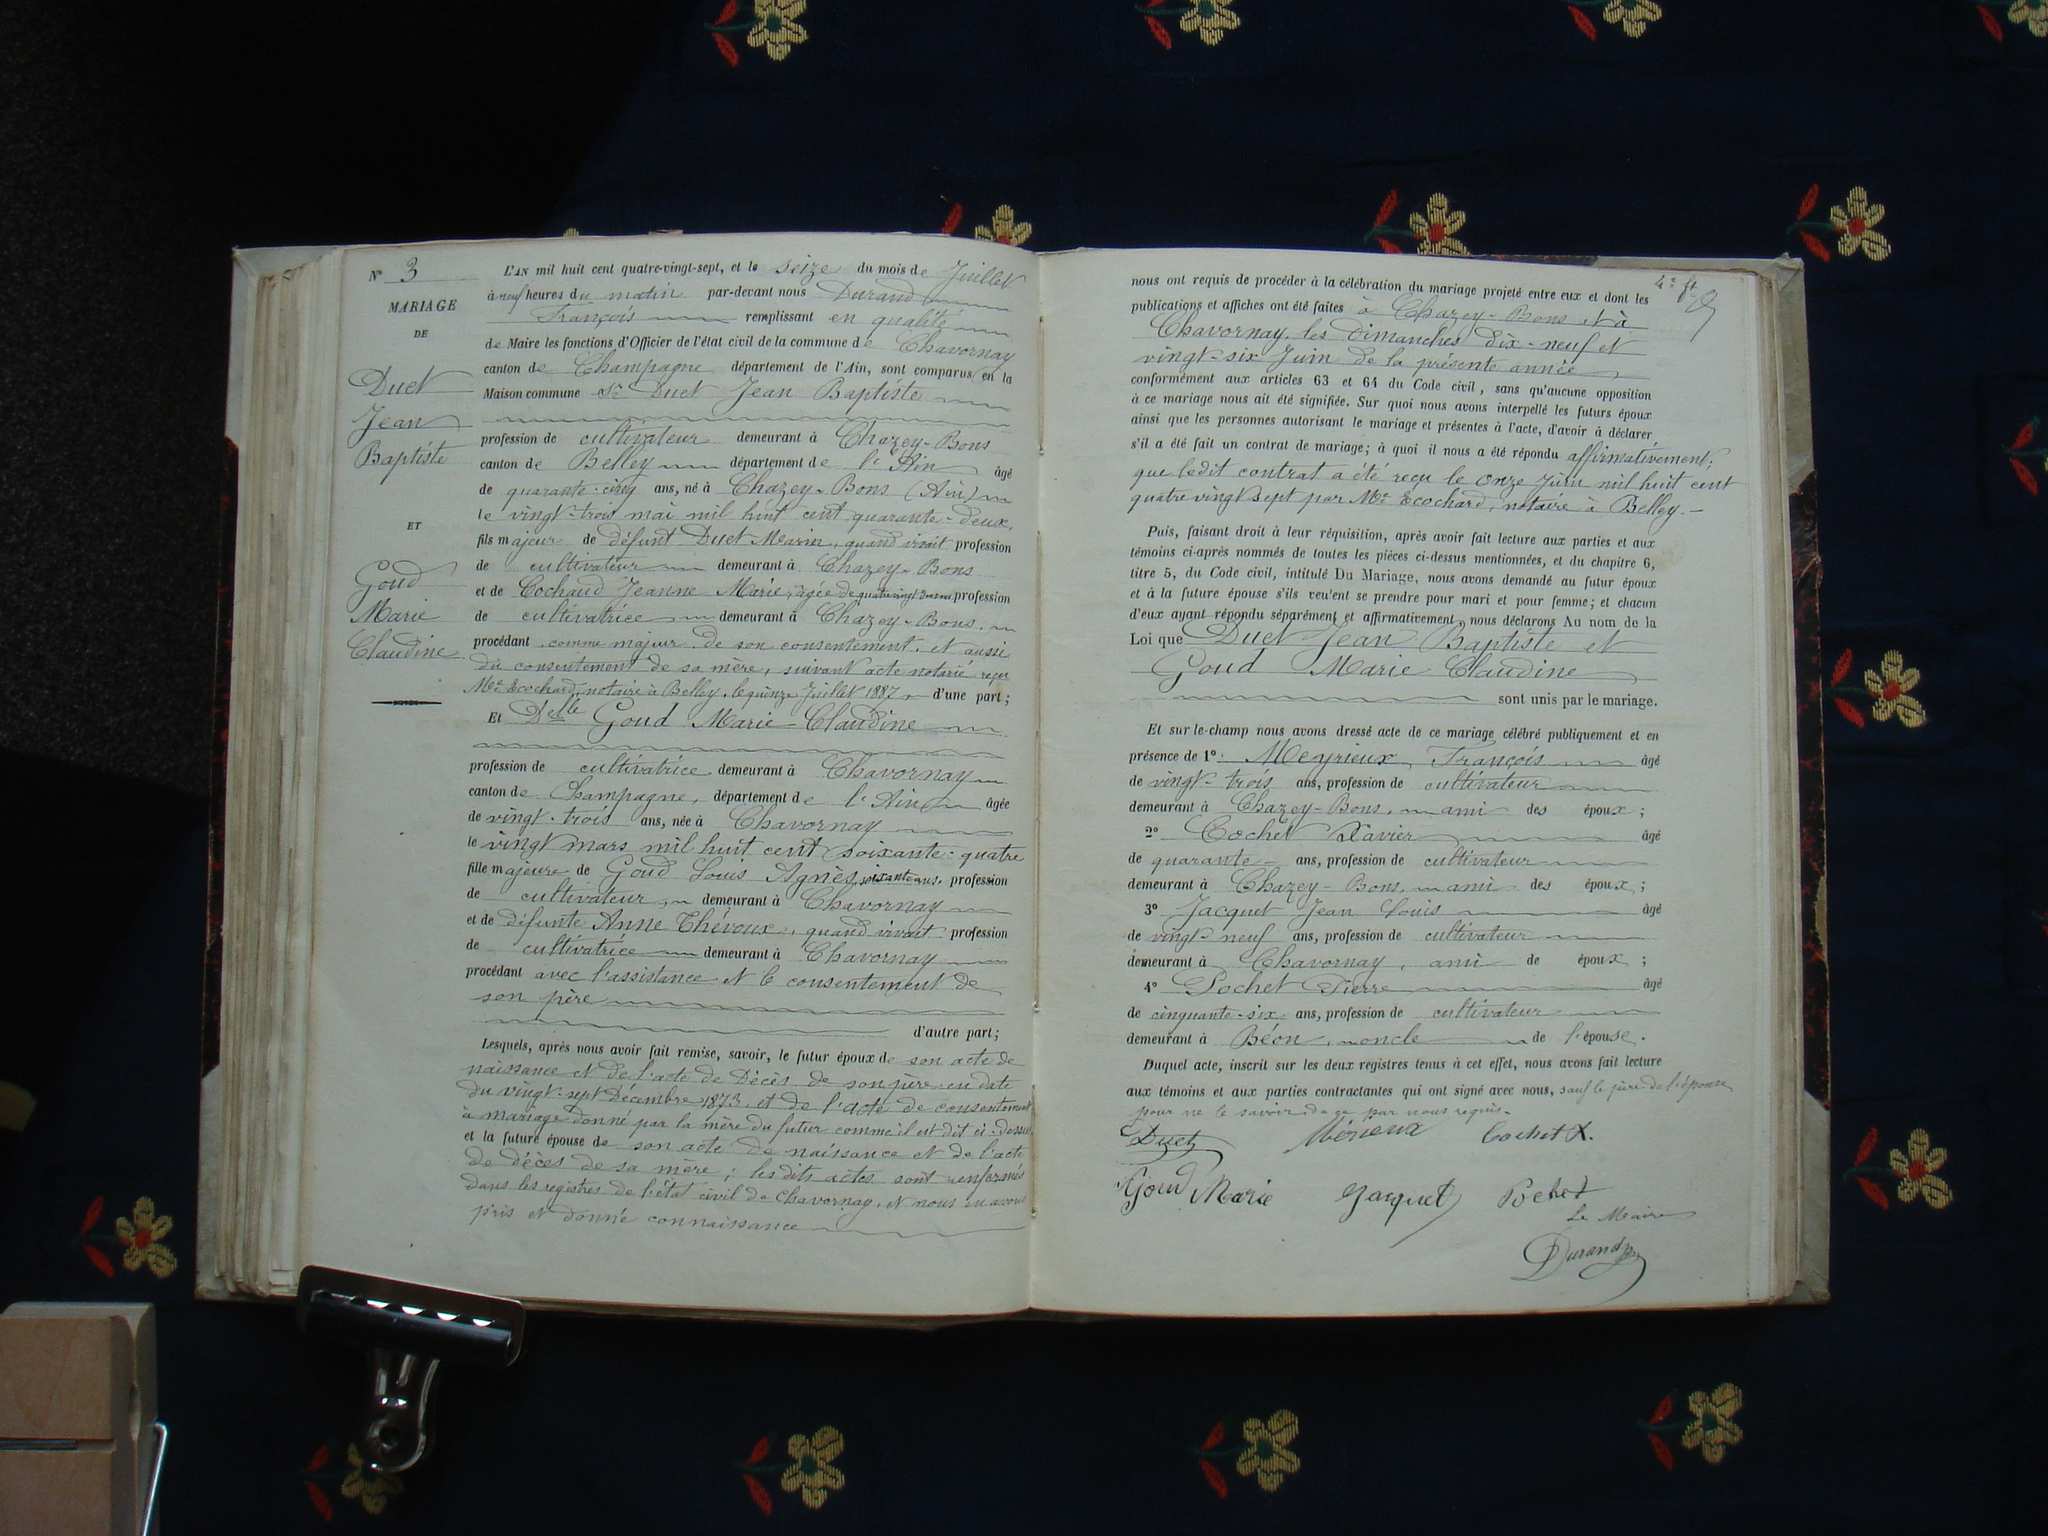 N° 3
MARIAGE
DE
Duet
Jean
Baptiste
ET
Goud
Marie
Claudine
L'AN mil huit cent quatre-vingt-sept, et le seize du mois de Juillet
à neuf heures du matin par-devant nous Durand
François remplissant en qualité
de Maire les fonctions d'Officier de l'état civil de la commune de Chavornay
canton de Champagne département de l'Ain, sont comparus en la
Maison commune Sr Duet Jean Baptiste
profession de cultivateur demeurant à Chazey-Bons
canton de Belley département de l'Ain âgé
de quarante-cinq ans, né à Chazey-Bons (Ain)
le vingt-trois mai mil huit cent quarante-deux,
fils majeur de défunt Duet, quand vivait profession
de cultivateur demeurant à Chazey-Bons
et de Cochaud Jeanne Marie, âgée de quatre vingt profession
de cultivatrice demeurant à Chazey-Bons.
procédant comme majeur de son consentement, et aussi
du consentement de sa mère, suivant acte notarié reçu
Me Ecochard, notaire à Belley, le quinze Juillet 1887, d'une part;
Et Delle Goud Marie Claudine
profession de cultivatrice demeurant à Chavornay
canton de Champagne, département de l'Ain âgée
de vingt-trois ans, née à Chavornay
le vingt mars mil huit cent soixante-quatre
fille majeure de Goud Louis Agnès, soixante ans, profession
de cultivateur, demeurant à Chavornay
et de défunte Anne Thévoux, quand vivait profession
de cultivatrice demeurant à Chavornay
procédant avec l'assistance et le consentement de
son père
d'autre part;
Lesquels, après nous avoir fait remise, savoir, le futur époux de son acte de
naissance et de l'acte de décès de son père en date
du vingt-sept Décembre 1873, et de l'acte de consentement
à mariage donné par la mère du futur comme il est dit ci-dessus,
et la future épouse de son acte de naissance et de l'acte
de décès de sa mère; les dits actes sont renfermés
dans les registres de l'état civil de Chavornay, et nous en avons
pris et donné connaissance
nous ont requis de procéder à la célébration du mariage projeté entre eux et dont les
publications et affiches ont été faites à Chazey-Bons et à
Chavornay, les dimanches dix-neuf et
vingt-six Juin de la présente année
conformément aux articles 63 et 64 du Code civil, sans qu'aucune opposition
à ce mariage nous ait été signifiée. Sur quoi nous avons interpellé les futurs époux
ainsi que les personnes autorisant le mariage et présentes à l'acte, d'avoir à déclarer
s'il a été fait un contrat de mariage; à quoi il nous a été répondu affirmativement;
que ledit contrat a été reçu le onze Juin mil huit cent
quatre vingt sept par Me Ecochard, notaire à Belley.
Puis, faisant droit à leur réquisition, après avoir fait lecture aux parties et aux
témoins ci-après nommés de toutes les pièces ci-dessus mentionnées, et du chapitre 6,
titre 5, du Code civil, intitulé Du Mariage, nous avons demandé au futur époux
et à la future épouse s'ils veulent se prendre pour mari et pour femme; et chacun
d'eux ayant répondu séparément et affirmativement, nous déclarons Au nom de la
Loi que Duet Jean Baptiste et
Goud Marie Claudine
sont unis par le mariage.
Et sur-le-champ nous avons dressé acte de ce mariage célébré publiquement et en
présence de 1° Meyrieux, François âgé
de vingt-trois ans, profession de cultivateur
demeurant à Chazey-Bons, ami des époux;
2° Cochet Xavier âgé
de quarante ans, profession de cultivateur
demeurant à Chazey-Bons, ami des époux;
3° Jacquet Jean Louis âgé
de vingt-neuf ans, profession de cultivateur
demeurant à Chavornay, ami de époux;
4° Pochet Pierre âgé
de cinquante-six ans, profession de cultivateur
demeurant à Béon, oncle de l'épouse.
Duquel acte, inscrit sur les deux registres tenus à cet effet, nous avons fait lecture
aux témoins et aux parties contractantes qui ont signé avec nous, sauf le père de l'épouse
pour ne le savoir de ce par nous requis.
Duet Mérieux Cochet X.
Goud Marie Jacquet Pochet
Le Maire
Durand